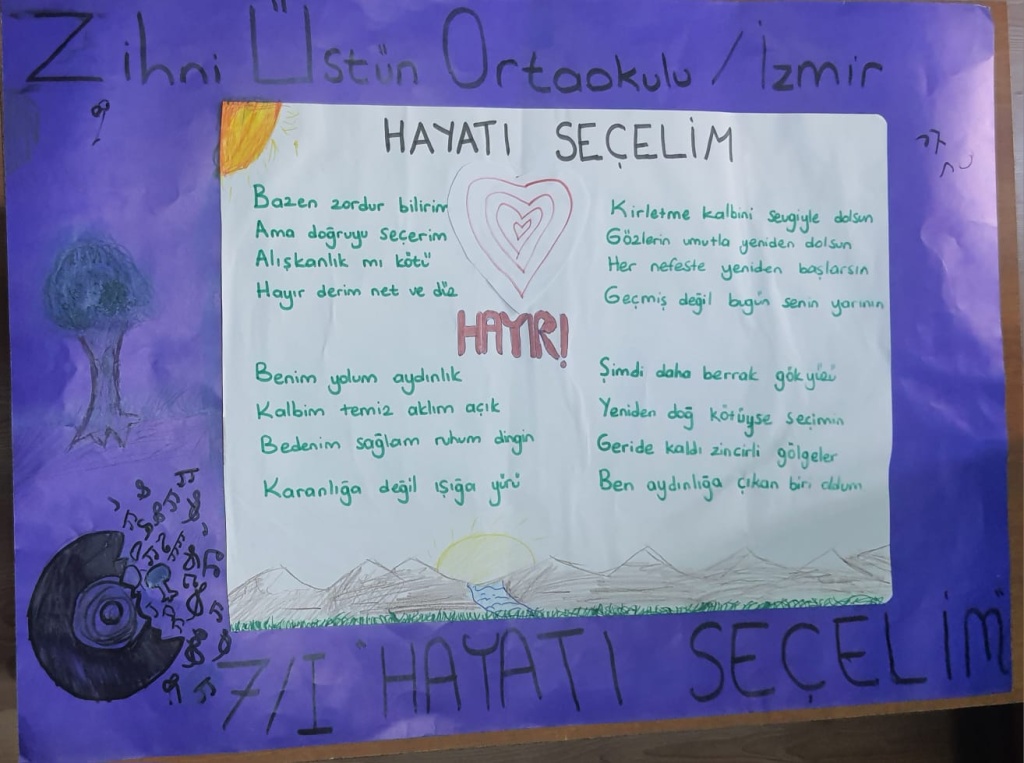 Zihni Üstün Ortaokulu / İzmir
HAYATI SEÇELİM
Bazen zordur bilirim
Ama doğruyu seçerim
Alışkanlık mı kötü
Hayır derim net ve düz
HAYIR!
Benim yolum aydınlık
Kalbim temiz aklım açık
Bedenim sağlam ruhum dingin
Karanlığa değil ışığa yürü
Kirletme kalbini sevgiyle dolsun
Gözlerin umutla yeniden dolsun
Her nefeste yeniden başlarsın
Geçmiş değil bugün senin yarının
Şimdi daha berrak gökyüzü
Yeniden doğ kötüyse seçimin
Geride kaldı zincirli gölgeler
Ben aydınlığa çıkan biri oldum
7/I "HAYATI SEÇELİM"